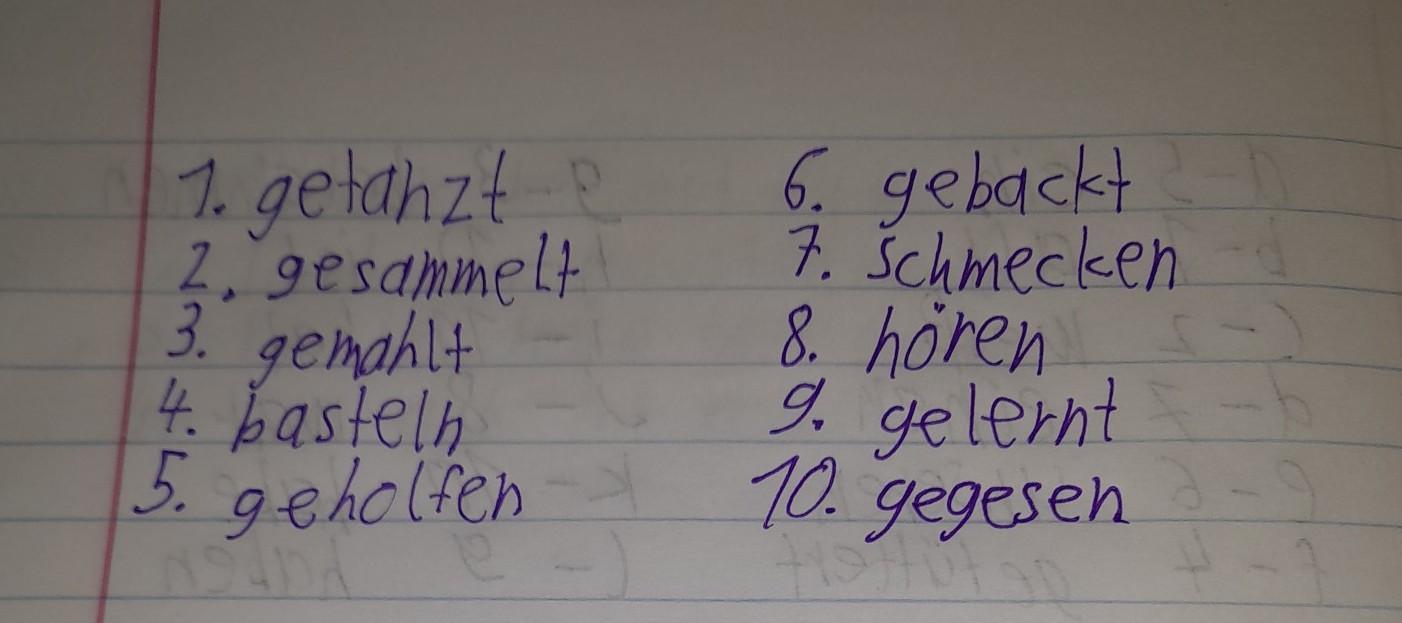 1. getanzt
2. gesammelt
3. gemahlt
4. basteln
5. geholfen
6. gebackt
7. schmecken
8. hören
9. gelernt
10. gegesen